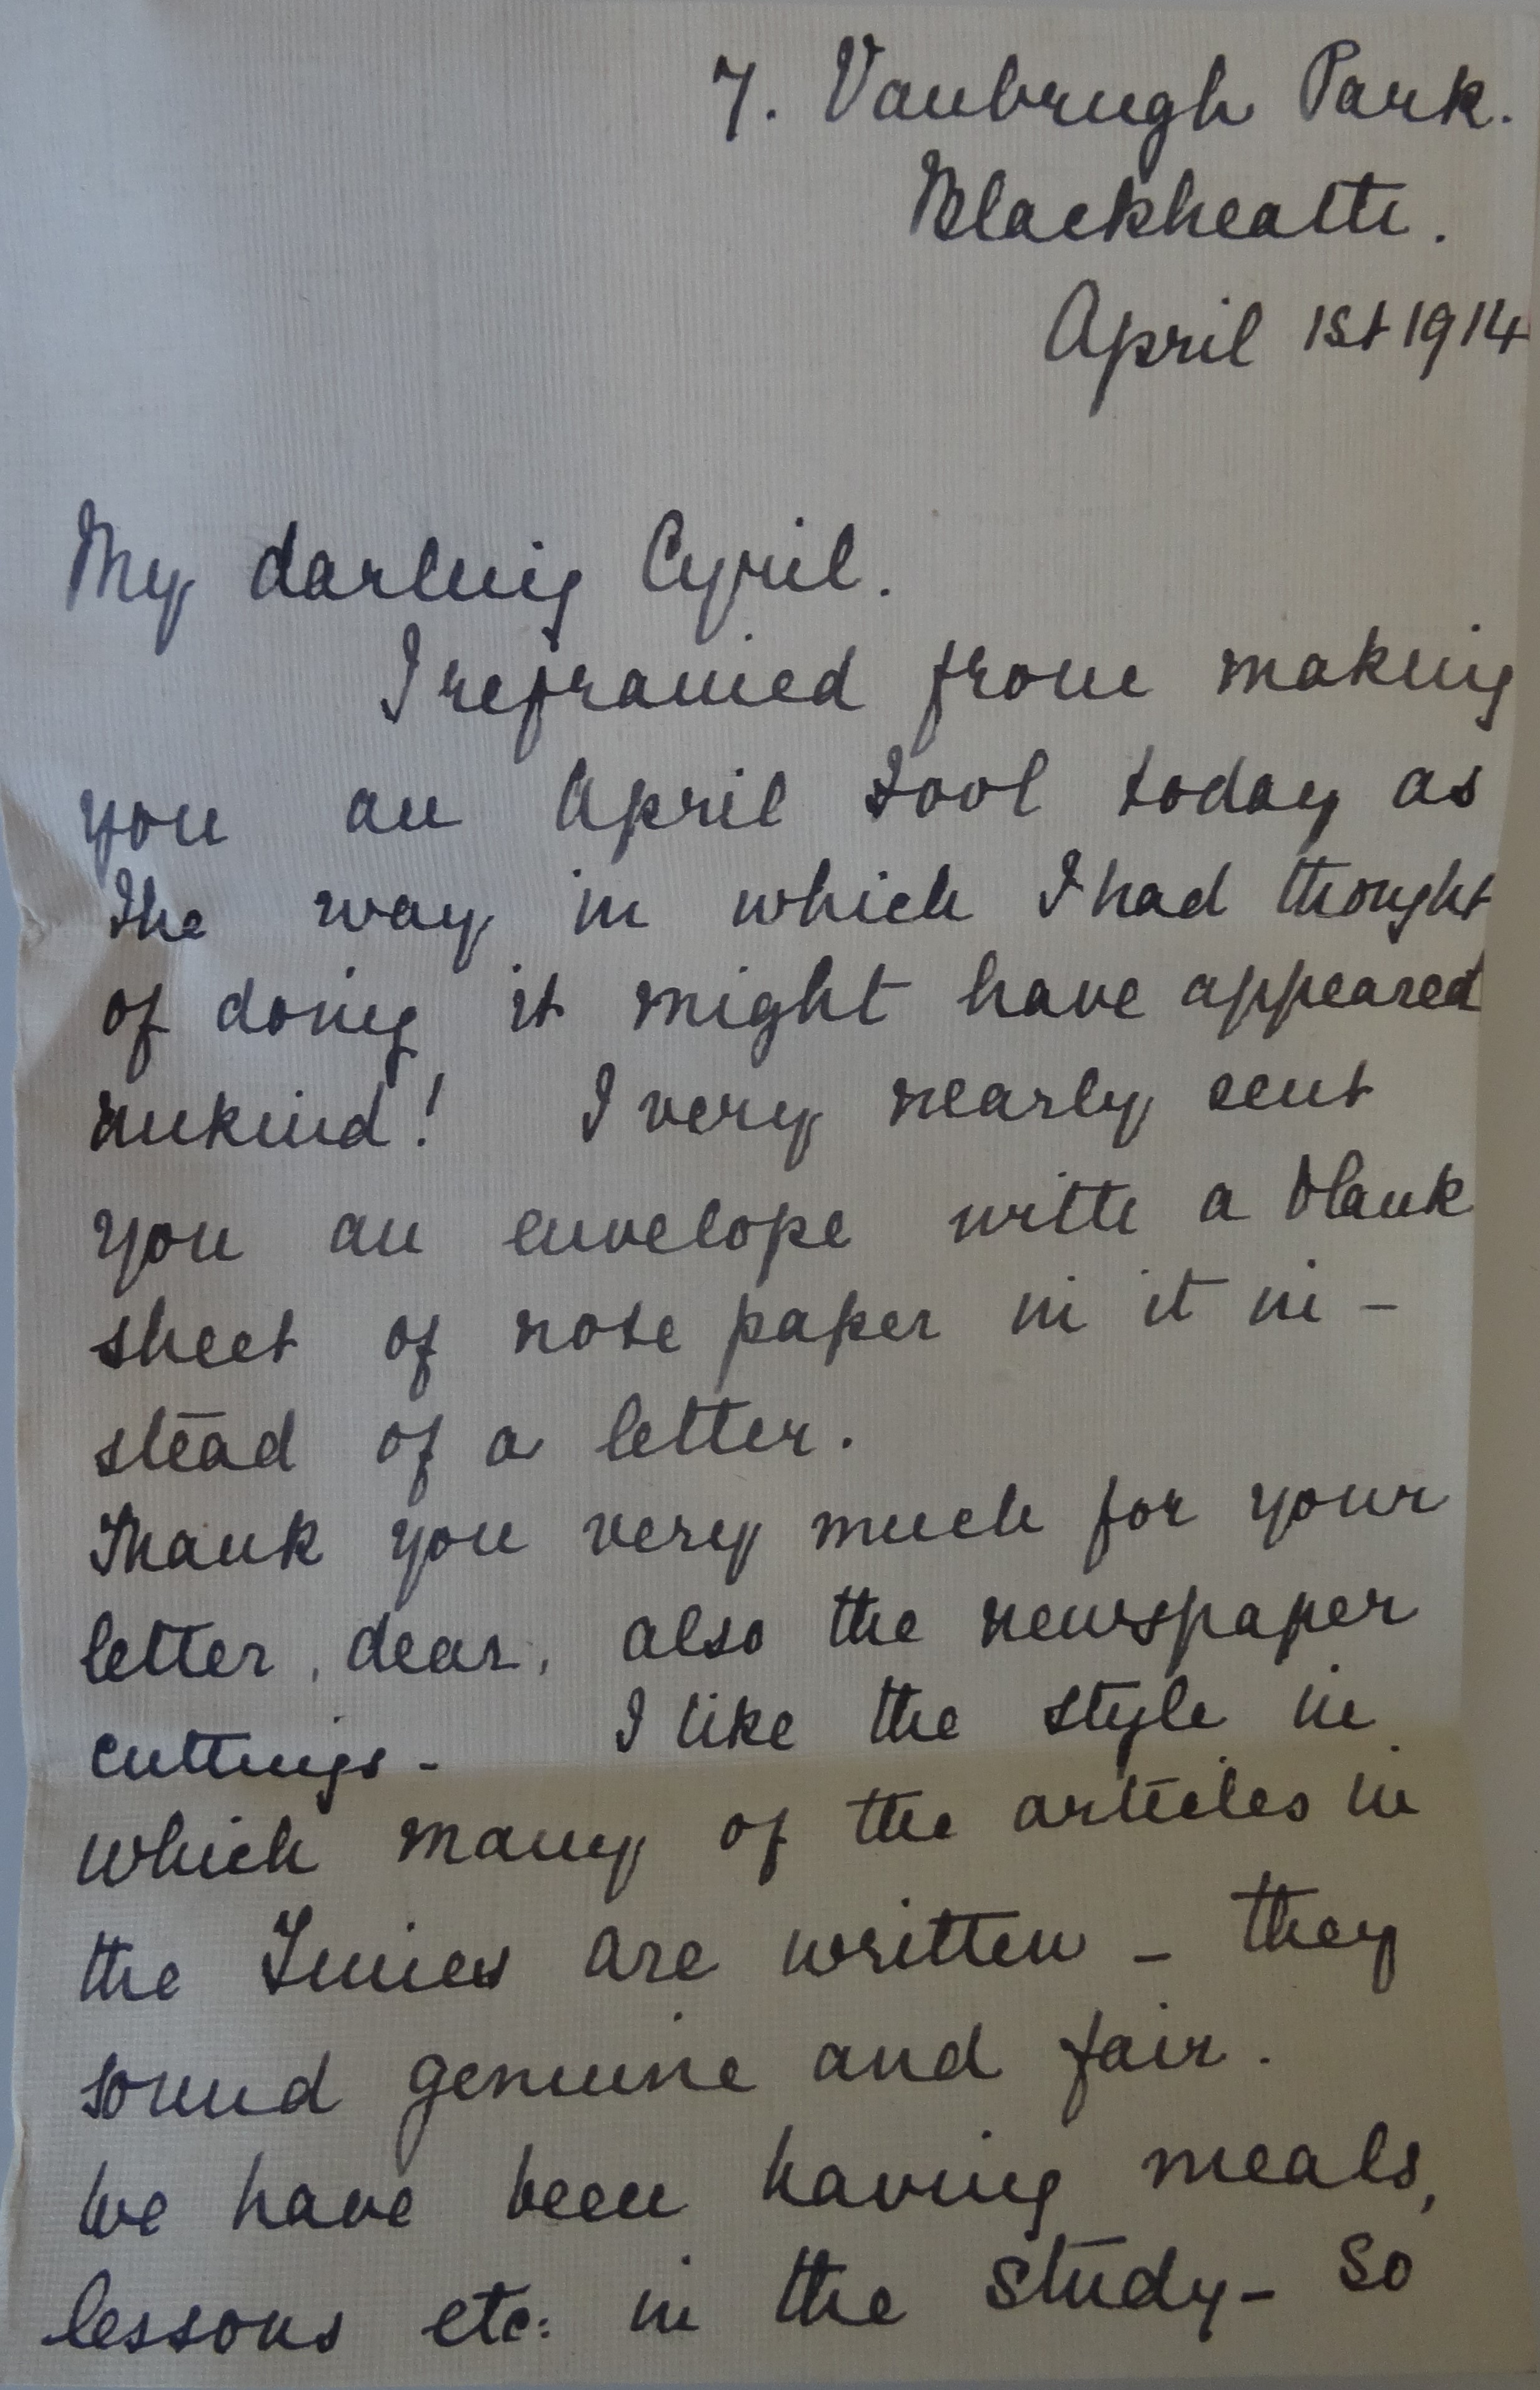 7. Vanbrugh Park.
Blackheath.
April 1st 1914
My darling Cyril.
I refrained from making
you an April Fool today as
the way in which I had thought
of doing it might have appeared
unkind! I very nearly sent
you an envelope with a blank
sheet of note paper in it in-
stead of a letter.
Thank you very much for your
letter, dear, also the newspaper
cuttings- I like the style in
which many of the articles in
the Times are written - they
sound genuine and fair.
We have been having meals,
lessons etc: in the study- so